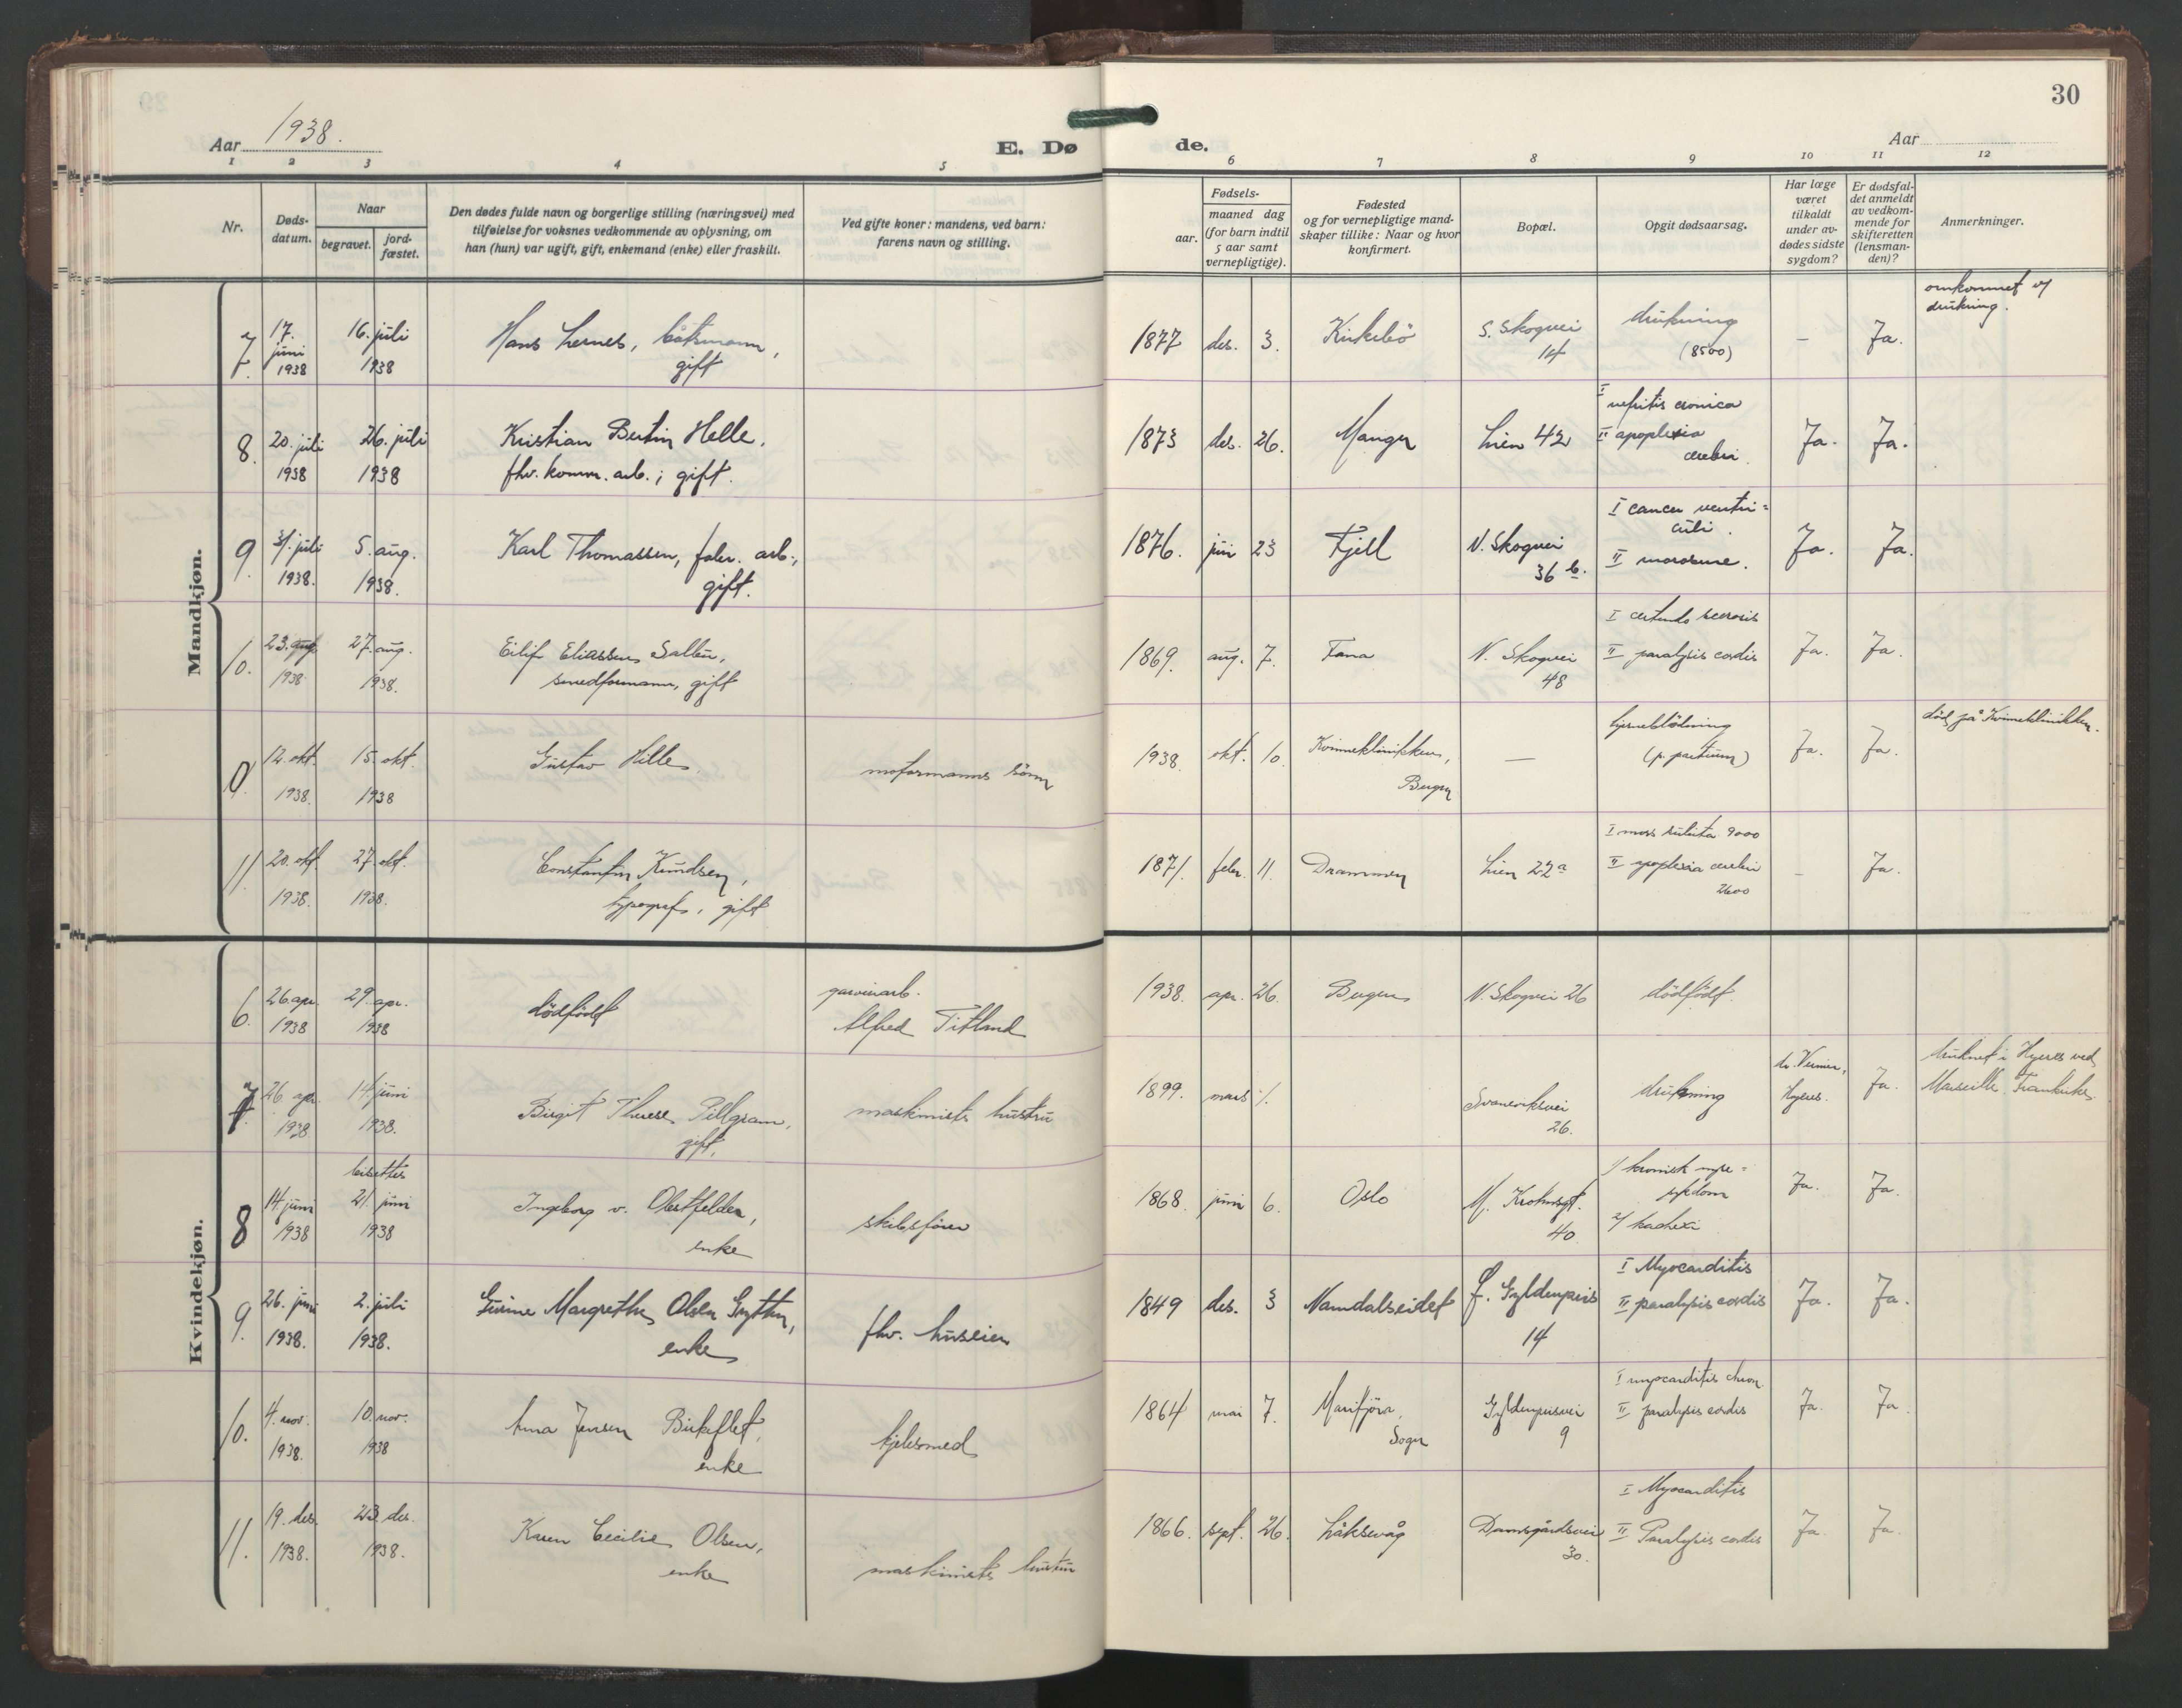 30
Aar 1938.
E. Dø
de.
Aar
1 2 3 4 5 6 7 8 9 10 11 12
Nr.
Døds-
datum.
Naar
begravet.
jord-
fæstet.
Den dødes fulde navn og borgerlige stilling (næringsvei) med
tilføielse for voksnes vedkommende av oplysning, om
han (hun) var ugift, gift, enkemand (enke) eller fraskilt.
Ved gifte koner: mandens, ved barn:
farens navn og stilling.
Fødsels-
aar.
maaned dag
(for barn indtil
5 aar samt
vernepligtige).
Fødested
og for vernepligtige mand-
skaper tillike: Naar og hvor
konfirmert.
Bopæl.
Opgit dødsaarsag.
Har læge
været
tilkaldt
under av-
dødes sidste
sygdom?
Er dødsfal-
det anmeldt
av vedkom-
mende for
skifteretten
(lensman-
den)?
Anmerkninger.
Mandkjøn.
7. 17. juni 1938 16. juli 1938 Hans Lernes, båtsmann, gift 1877 des. 3. Kirkebö S. Skogvei 14 drukning (8500) — Ja. omkommet v/ drukning.
8. 20. juli 1938 26. juli 1938 Kristian Bertin Helle, fhv. komm. arb.; gift. 1873 des. 26. Manger Lien 42 I nefritis cronica II apoplexia cerebri. Ja. Ja.
9. 31. juli 1938. 5. aug. 1938. Karl Thomassen, fabr. arb., gift. 1876. juni 23 Fjell N. Skogvei 36 b. I cancer ventri= culi II Ja. Ja.
10. 23. aug. 1938 27. aug. 1938. Eilif Eliassen Sallen, smedformann, gift 1869. aug. 7. Fana N. Skogvei 48 I II paralysis cordis Ja. Ja.
0. 12. okt. 1938. 15. okt. 1938 Gustav Hille, motormanns sönn 1938. okt. 10. Kvinneklinikken, Bergen — hjerneblödning (p. partum) Ja. Ja. död på Kvinneklinikken.
11. 20. okt. 1938. 27. okt. 1938. Constantin Knudsen, typograf, gift 1871. febr. 11. Drammen Lien 22a I mors subita 9000 II apoplexia cerebri 2600 — Ja.
Kvindekjøn.
6. 26. apr. 1938 29. apr. 1938 dödfödt garveriarb. Alfred Titland 1938. apr. 26. Bergen N. Skogvei 26 dödfödt.
7. 26. apr. 1938 14. juni 1938. Birgit Therese Pillgram, gift. maskinists hustru 1899. mars 1. Svaneviksvei 26. drukning Hyères. Ja. druknet i Hyeres ved Marseille, Frankrike.
8 14. juni 1938 bisettes 21. juni 1938 Ingeborg v. Obstfelder, enke skibsförer 1868. juni 6. Oslo M. Krohnsgt. 40 1/ kronisk nyre= sykdom 2/ kachexi Ja. Ja.
9. 26. juni 1938. 2. juli 1938. Gurine Margrethe Olsen Grytten, enke fhv. huseier 1849 des. 3 Namdalseidet f. Gyldenpris 14 I Myocarditis II paralysis cordis Ja. Ja.
10. 4. nov. 1938. 10. nov. 1938 Anna Jensen Birkeflet, enke kjelesmed 1864 mai 7. Marifjöra, Sogn Gyldenprisvei 9 I myocarditis chron. II paralysis cordis Ja. Ja.
11. 19. des. 1938. 23. des. 1938. Karen Cecilie Olsen, enke maskinists hustru 1866. sept. 26. Laksevåg Damsgårdsvei 30. I Myocarditis II Paralysis cordis Ja. Ja.